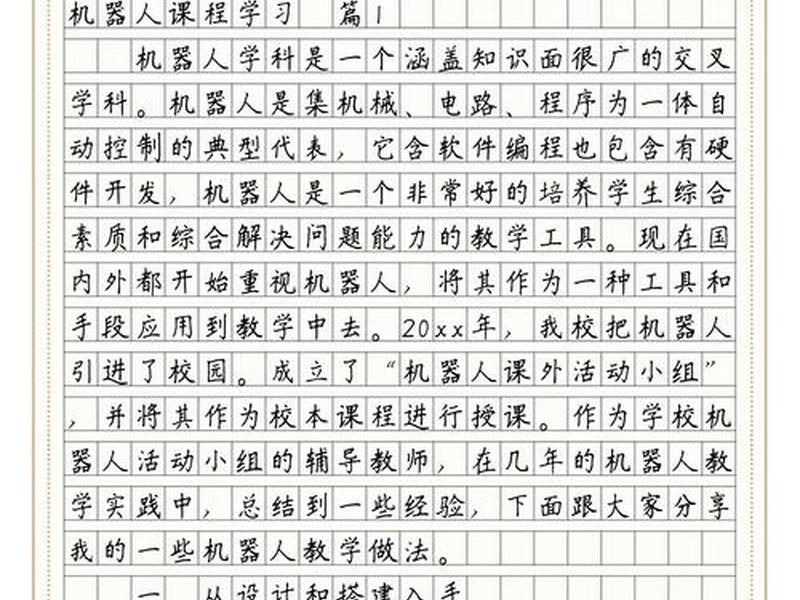 机器人课程学习 篇1
机器人学科是一个涵盖知识面很广的交叉
学科。机器人是集机械、电路、程序为一体自
动控制的典型代表，它含软件编程也包含有硬
件开发，机器人是一个非常好的培养学生综合
素质和综合解决问题能力的教学工具。现在国
内外都开始重视机器人，将其作为一种工具和
手段应用到教学中去。20xx年，我校把机器人
引进了校园。成立了“机器人课外活动小组”
，并将其作为校本课程进行授课。作为学校机
器人活动小组的辅导教师，在几年的机器人教
学实践中，总结到一些经验，下面跟大家分享
我的一些机器人教学做法。
一 从设计和搭建入手